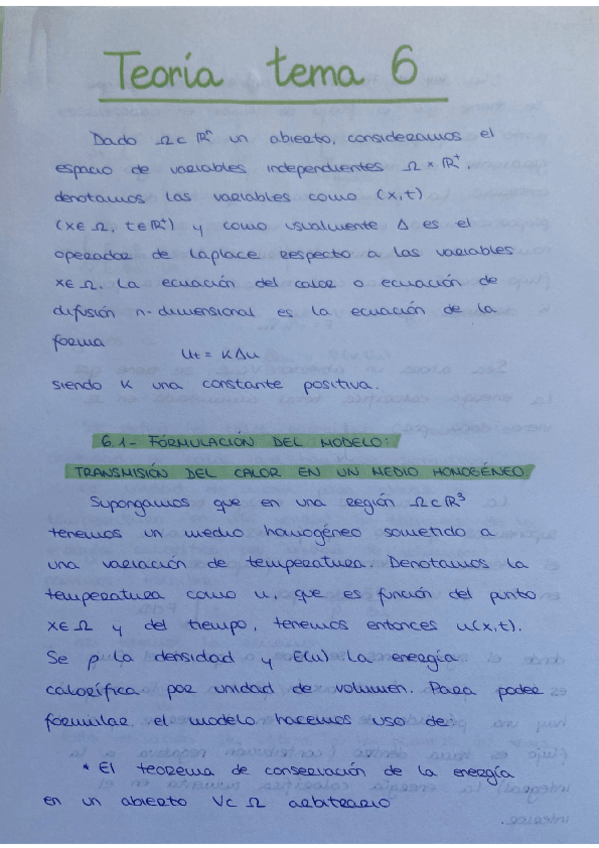 Teoría tema 6
Dado Ω ⊂ ℝⁿ un abierto, consideramos el
espacio de variables independientes Ω × ℝ⁺,
denotamos las variables como (x,t)
(x∈Ω, t∈ℝ⁺) y como usualmente Δ es el
operador de Laplace respecto a las variables
x∈Ω. La ecuación del calor o ecuación de
difusión n-dimensional es la ecuación de la
forma
Ut = KΔu
siendo K una constante positiva.
6.1- FÓRMULACIÓN DEL MODELO:
TRANSMISIÓN DEL CALOR EN UN MEDIO HOMOGÉNEO
Supongamos que en una región Ω⊂ℝ³
tenemos un medio homogéneo sometido a
una variación de temperatura. Denotamos la
temperatura como u, que es función del punto
x∈Ω y del tiempo, tenemos entonces u(x,t).
Se ρ la densidad y E(u) la energía
calorífica por unidad de volumen. Para poder
formular el modelo hacemos uso de:
* El teorema de conservación de la energía
en un abierto V⊂Ω arbitrario